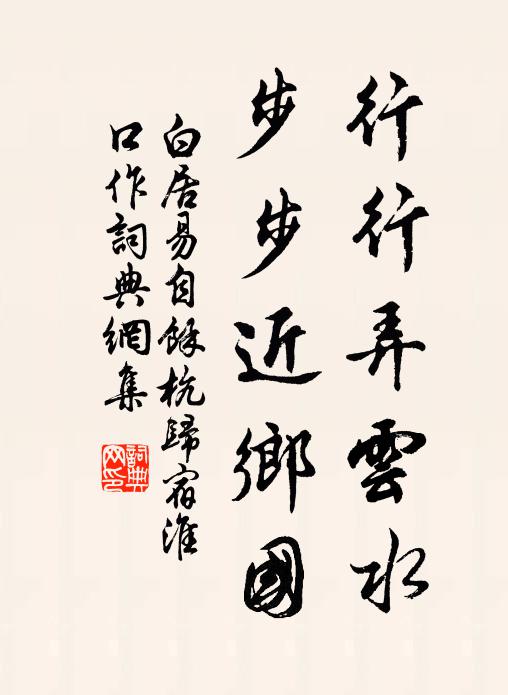 行行弄雲水
步步近鄉國
白居易自餘杭歸宿淮
口作詞典網集
詞典網印